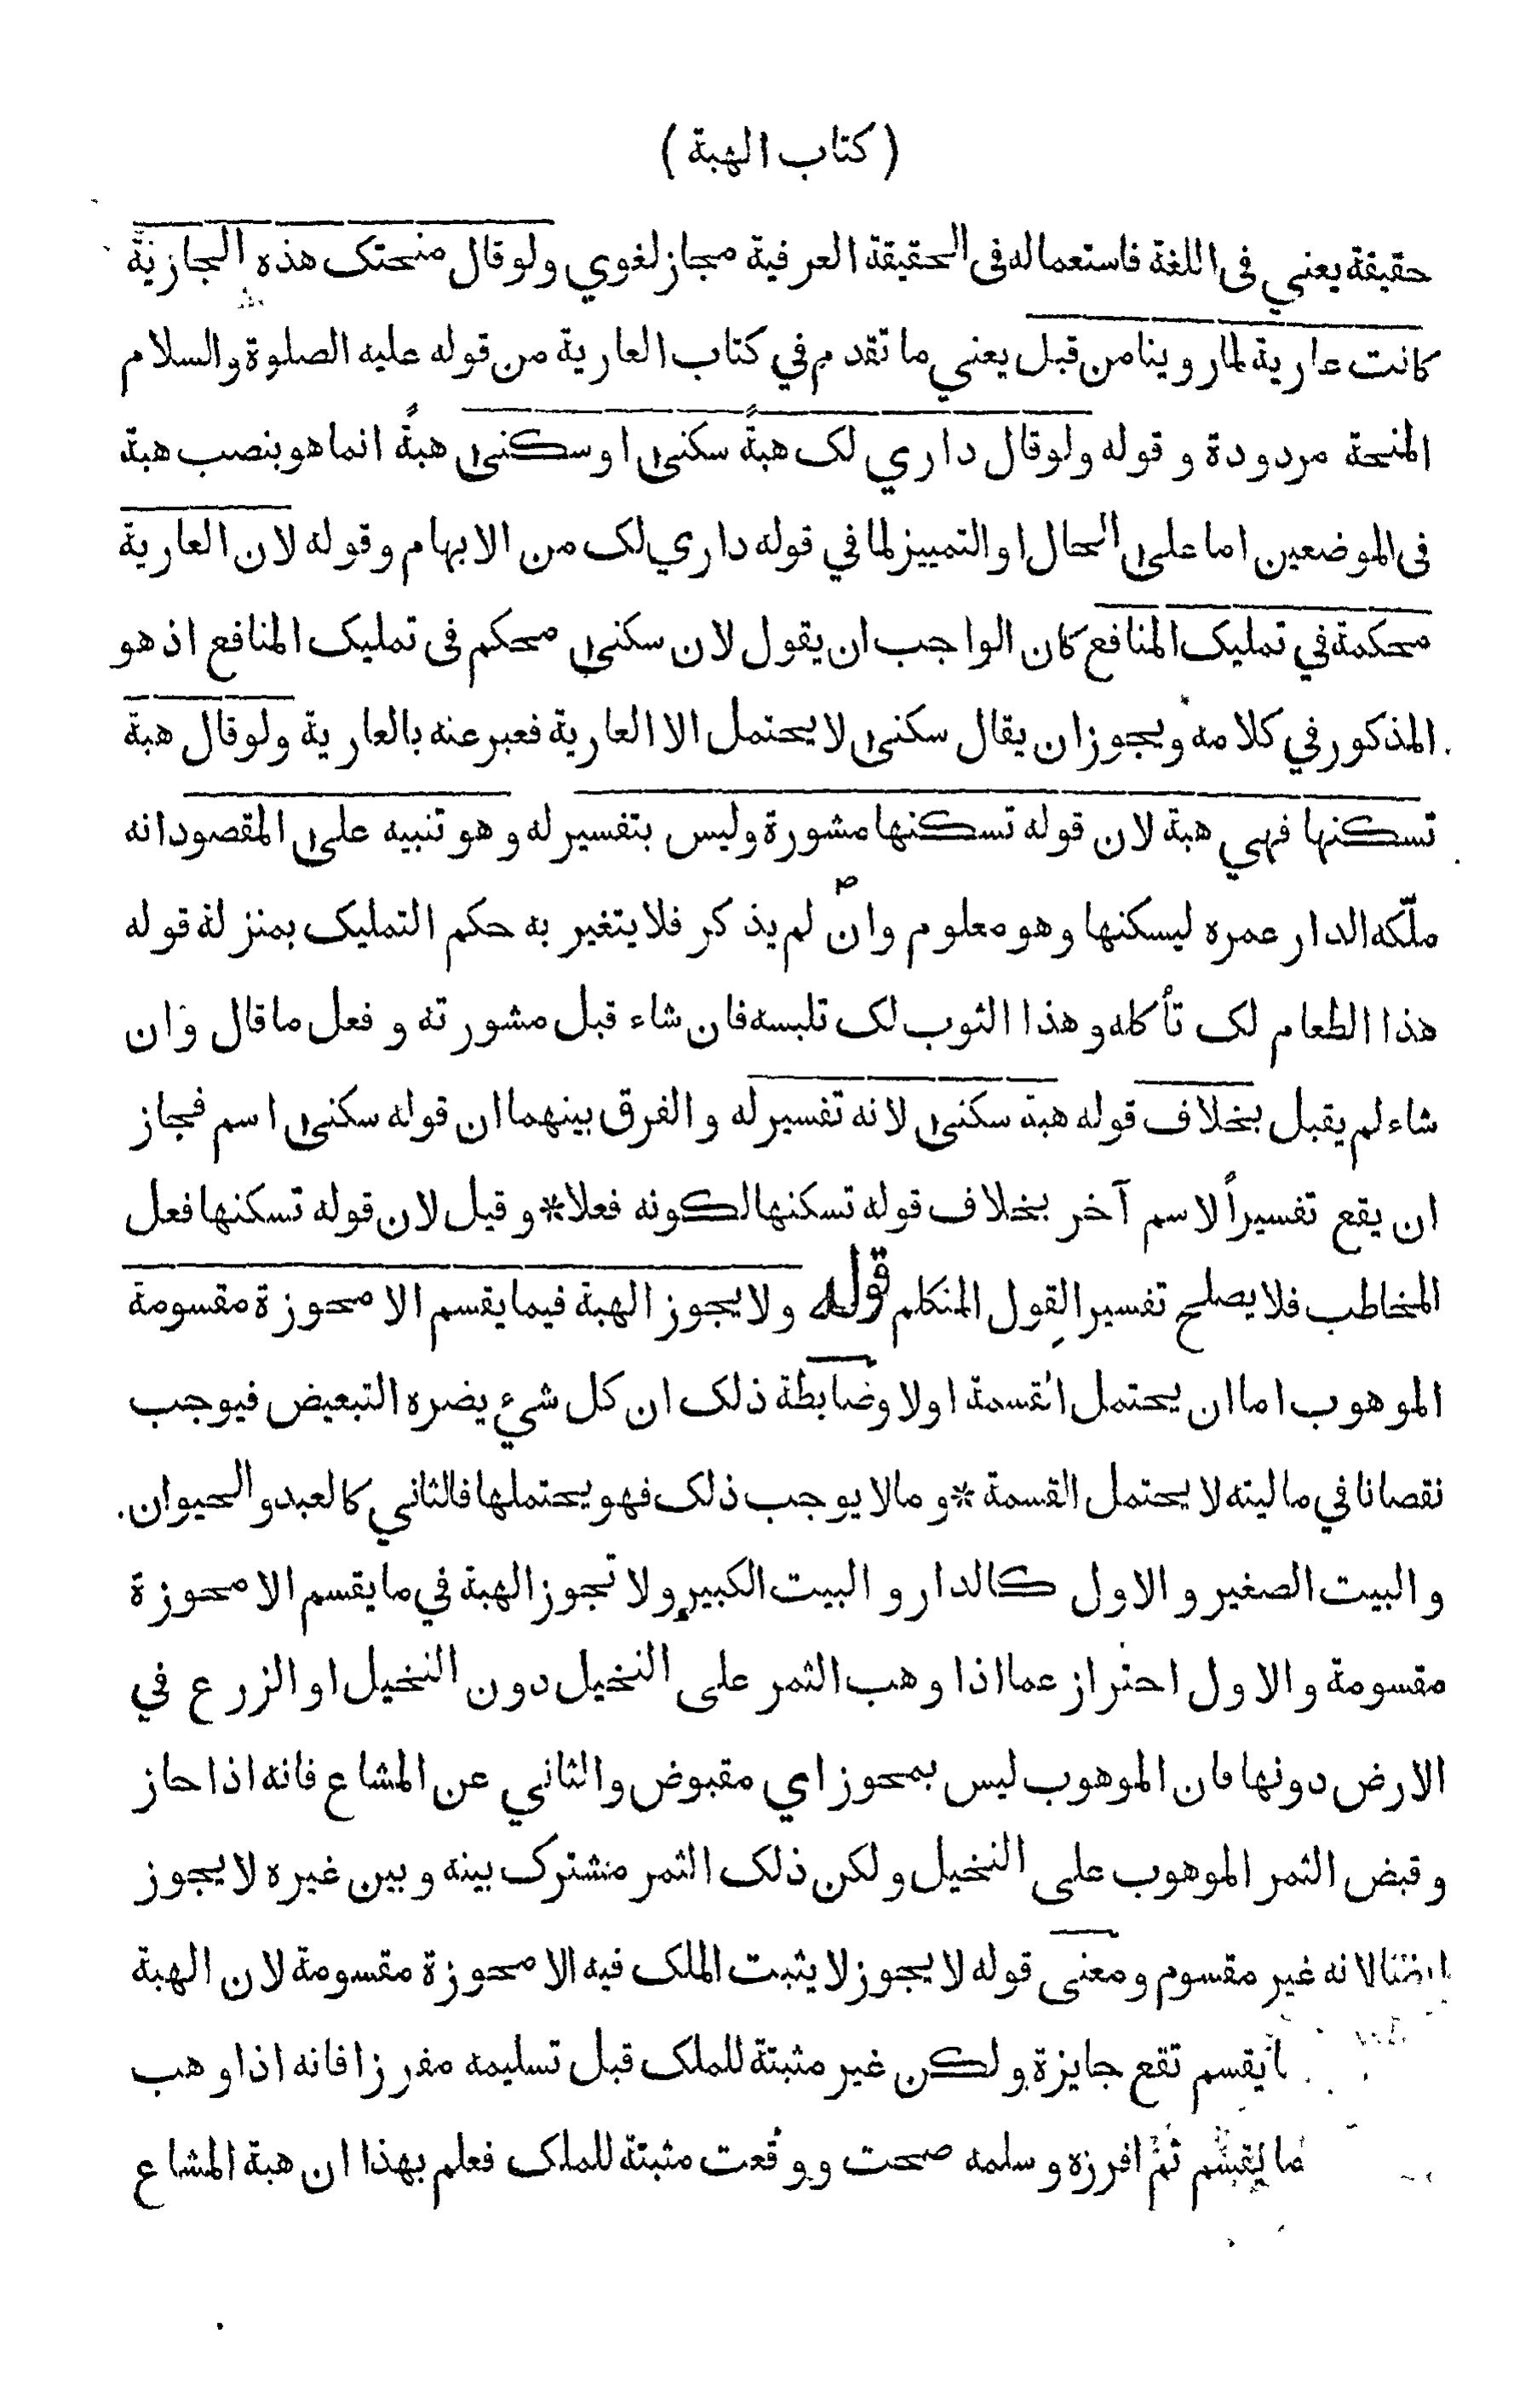 ( كتاب الهبة )
حقيقة يعني فى اللغة فاستعماله فى الحقيقة العرفية مجاز لغوي ولوقال منحتك هذه الجارية
كانت عارية لما روينا من قبل يعني ما تقدم في كتاب العارية من قوله عليه الصلوة والسلام
المنحة مردودة و قوله ولوقال داري لك هبةً سكنى او سكنى هبةً انما هو بنصب هبة
فى الموضعين اما على الحال او التمييز لما في قوله داري لك من الابهام و قوله لان العارية
محكمة في تمليك المنافع كان الواجب ان يقول لان سكنى محكم فى تمليك المنافع اذ هو
المذكور في كلامه ويجوز ان يقال سكنى لا يحتمل الا العارية فعبر عنه بالعارية ولوقال هبة
تسكنها فهي هبة لان قوله تسكنها مشورة وليس بتفسير له و هو تنبيه على المقصود انه
ملّكه الدار عمره ليسكنها و هو معلوم وان لم يذكر فلا يتغير به حكم التمليك بمنزلة قوله
هذا الطعام لك تأكله و هذا الثوب لك تلبسه فان شاء قبل مشورته و فعل ما قال وان
شاء لم يقبل بخلاف قوله هبة سكنى لانه تفسير له و الفرق بينهما ان قوله سكنى اسم فجاز
ان يقع تفسيراً لاسم آخر بخلاف قوله تسكنها لكونه فعلا * و قيل لان قوله تسكنها فعل
المخاطب فلا يصلح تفسيرا لقول المتكلم قوله ولا يجوز الهبة فيما يقسم الا محوزة مقسومة
الموهوب اما ان يحتمل القسمة اولا وضابطة ذلك ان كل شيء يضره التبعيض فيوجب
نقصانا في ماليته لا يحتمل القسمة * و مالا يوجب ذلك فهو يحتملها فالثاني كالعبد والحيوان
و البيت الصغير و الاول كالدار و البيت الكبير ولا تجوز الهبة في ما يقسم الا محوزة
مقسومة والاول احتراز عما اذا وهب الثمر على النخيل دون النخيل او الزرع في
الارض دونها فان الموهوب ليس بمحوز اي مقبوض والثاني عن المشاع فانه اذا حاز
و قبض الثمر الموهوب على النخيل و لكن ذلك الثمر مشترك بينه و بين غيره لا يجوز
ايضا لانه غير مقسوم ومعنى قوله لا يجوز لا يثبت الملك فيه الا محوزة مقسومة لان الهبة
يقسم تقع جايزة ولكن غير مثبتة للملك قبل تسليمه مفرزا فانه اذا وهب
ما يقسم ثم افرزه و سلمه صحت و وقعت مثبتة للملك فعلم بهذا ان هبة المشاع